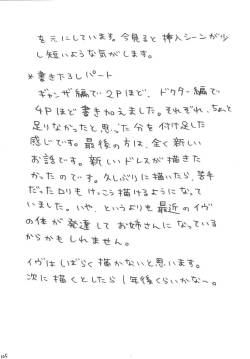 を元にしています。今見ると挿入シーンが少
し短いような気がします。
*書きたろしパート
ギャンザ編で2Pほど、ドクター編で
4Pほど書き加えました。それぞれ、ちょっと
足りなかったと思った分を付け足した
感じです。最後の方は、全く新しい
お話です。新しいドレスが描きた
かったのです。久しぶりに描いたら、苦手
だったロリもけっこう描けるようになって
いました。いや、というよりも最近のイヴ
の体が発達してお姉さんになっている
からかもしれません。
イヴはしばらく描かないと思います。
次に描くとしたら1年後くらいかな〜。